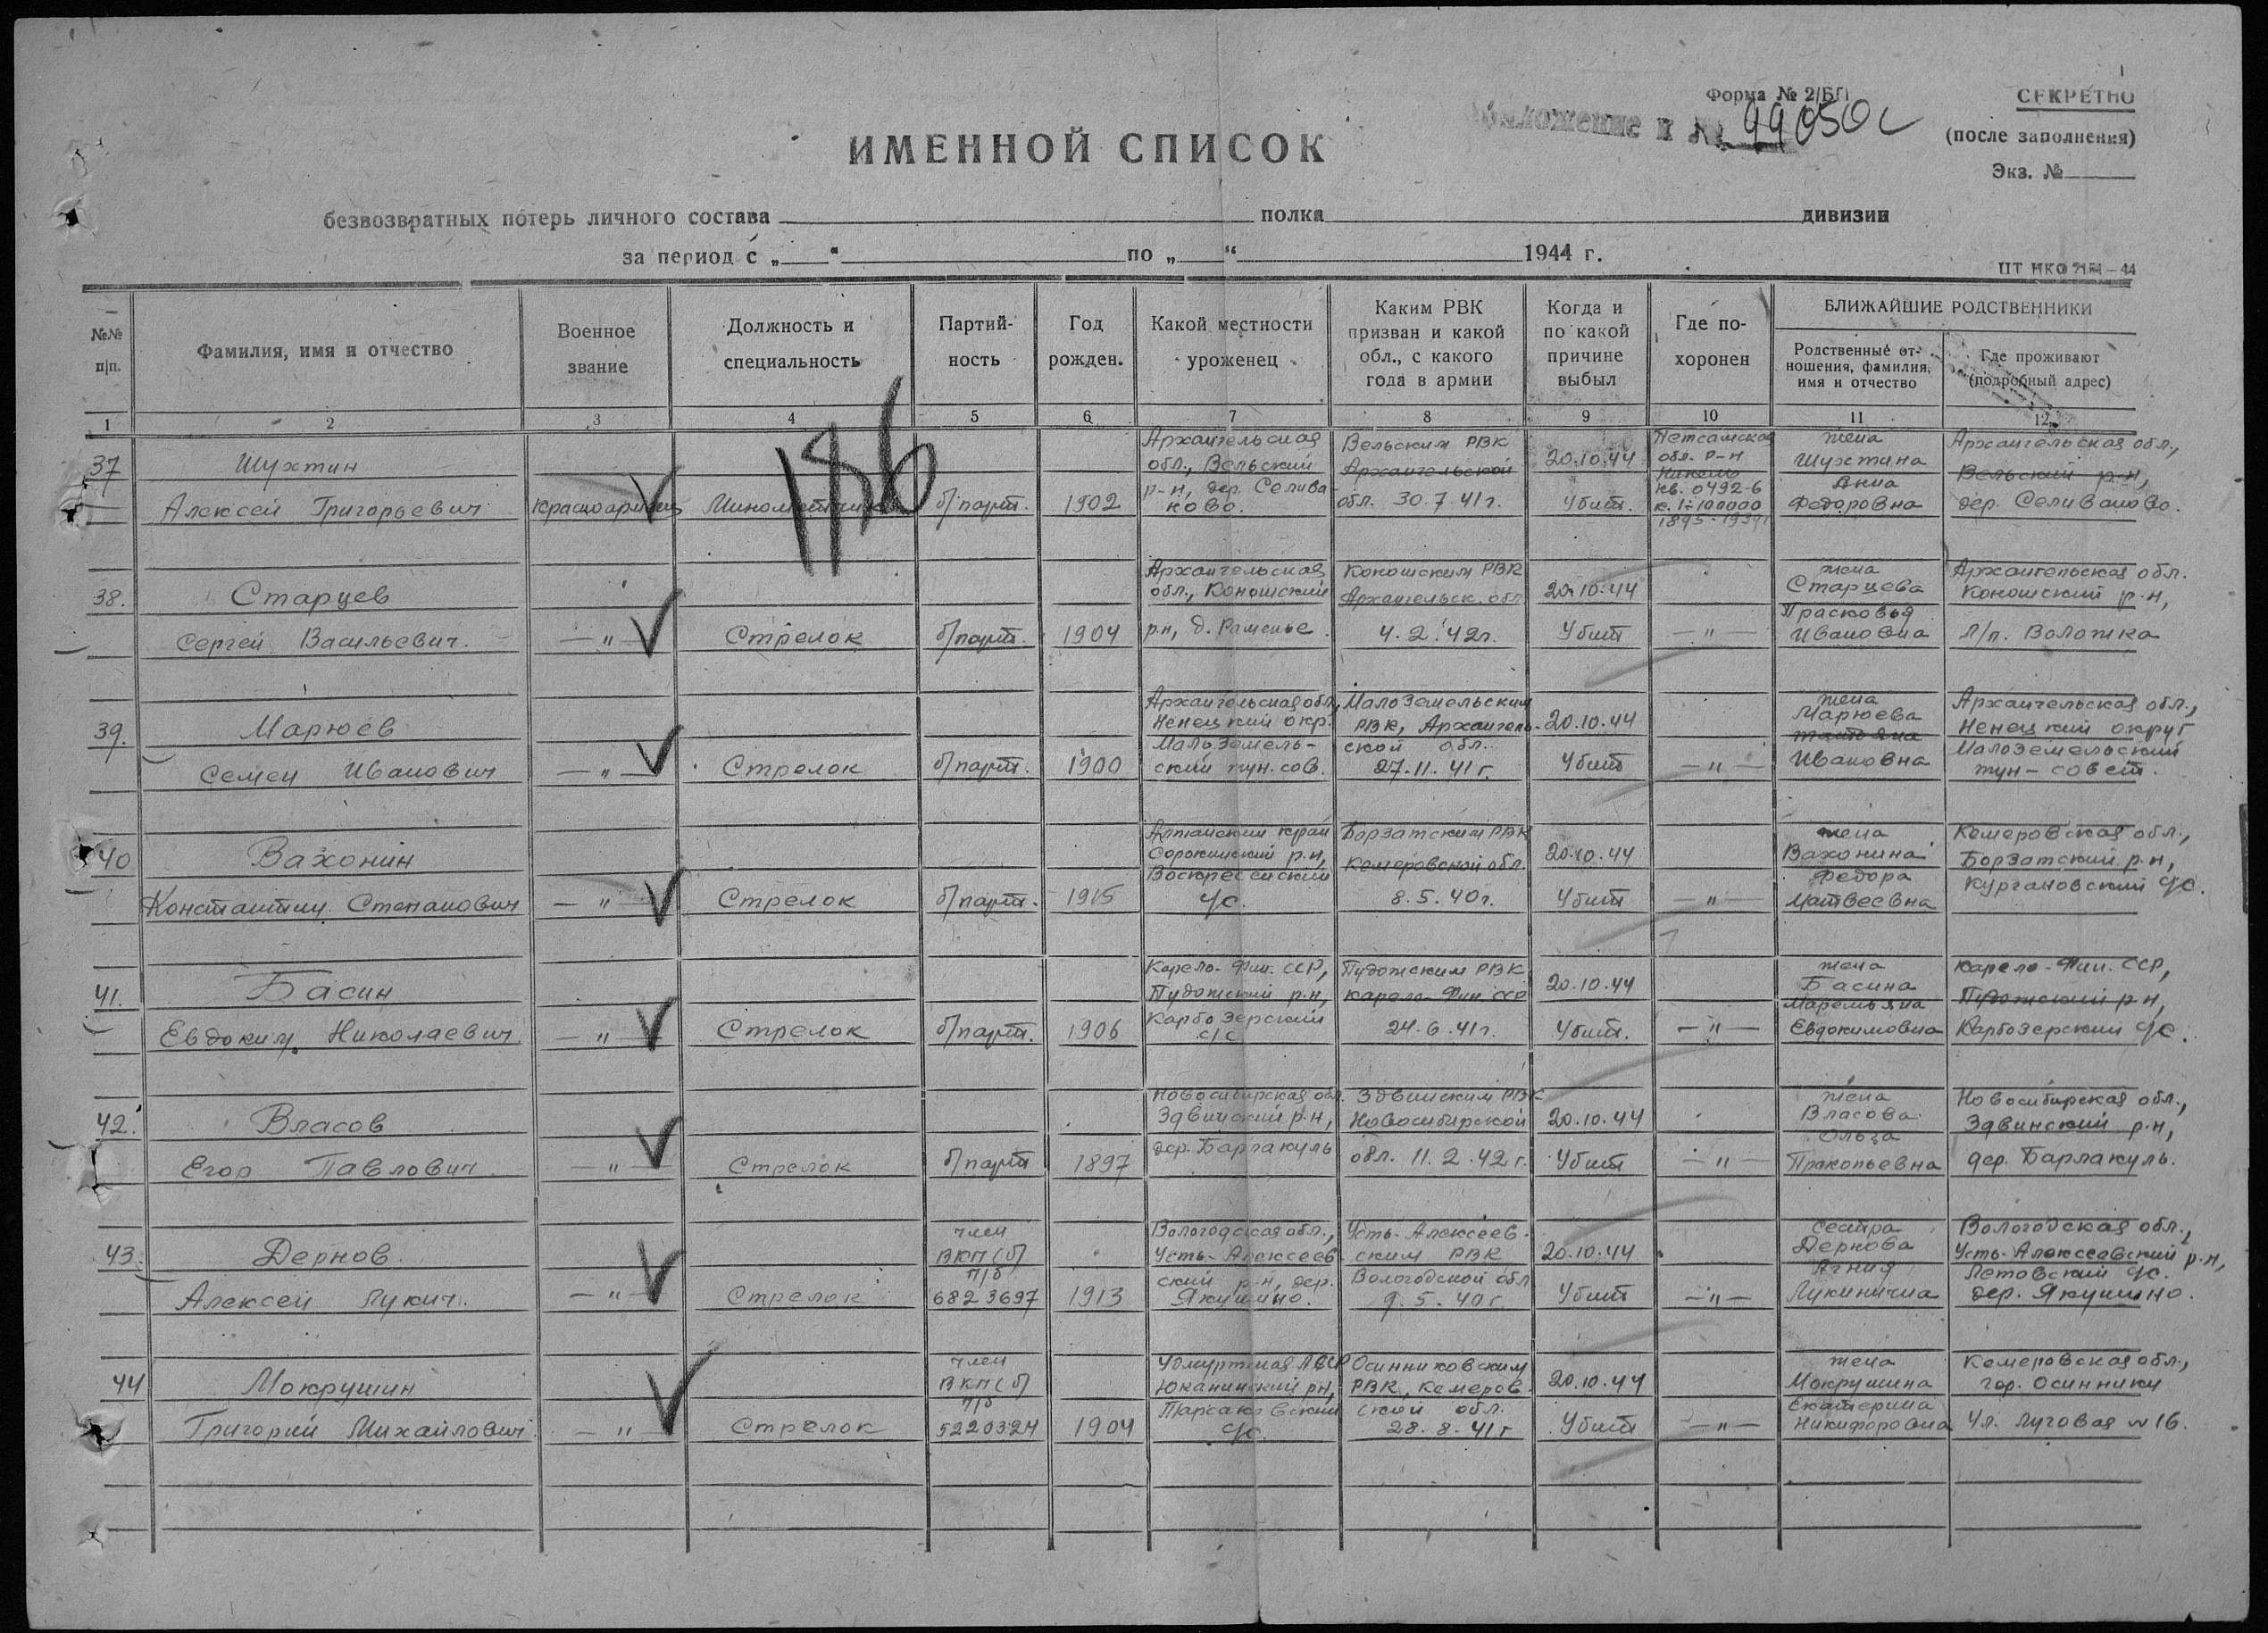 Форма № 2/БП
СЕКРЕТНО
Приложение к № 99050с
(после заполнения)
ИМЕННОЙ СПИСОК
Экз. №
безвозвратных потерь личного состава полка дивизии
за период с „ “ по „ “ 1944 г.
№№ п|п.
Фамилия, имя и отчество
Военное звание
Должность и специальность
Партий-
ность
Год рожден.
Какой местности уроженец
Каким РВК
призван и какой
обл., с какого
года в армии
Когда и
по какой
причине
выбыл
Где по-
хоронен
БЛИЖАЙШИЕ РОДСТВЕННИКИ
Родственные от-
ношения, фамилия,
имя и отчество
Где проживают
(подробный адрес)
1 2 3 4 5 6 7 8 9 10 11 12
186
37
Шухтин
Алексей Григорьевич
Красноармеец
Минометчик
б/парт.
1902
Архангельская
обл., Вельский
р-н, дер. Селива-
ково.
Вельским РВК
Архангельской
обл. 30.7.41г.
20.10.44
Убит.
Петсамская
обл. р-н
Никель
кв. 0492-6
к. 1÷100000
1895-1939г
жена
Шухтина
Анна
Федоровна
Архангельская обл.,
Вельский р-н,
дер. Селиваково.
38.
Старцев
Сергей Васильевич.
— " —
Стрелок
б/парт.
1904
Архангельская
обл., Коношский
р-н, д. Раменье.
Коношским РВК
Архангельск. обл
4.2.42г.
20.10.44
Убит
— " —
жена
Старцева
Прасковья
Ивановна
Архангельская обл.
Коношский р-н,
Л/п. Волошка
39.
Марюев
Семен Иванович
— " —
Стрелок
б/парт.
1900
Архангельская обл,
Ненецкий окр.
Малоземель-
ский тун. сов.
Малоземельским
РВК, Архангель-
ской обл.
27.11.41г.
20.10.44
Убит
— " —
жена
Марюева
Татьяна
Ивановна
Архангельская обл.,
Ненецкий округ
Малоземельский
тун-совет.
40
Вахонин
Константин Степанович
— " —
Стрелок
б/парт.
1915
Алтайский край
Сорокинский р-н,
Воскресенский
с/с.
Борзатским РВК
Кемеровской обл.
8.5.40г.
20.10.44
Убит
— " —
жена
Вахонина
Федора
Матвеевна
Кемеровская обл.,
Борзатский р-н,
Кургановский с/с.
41.
Басин
Евдоким Николаевич
— " —
Стрелок
б/парт.
1906
Карело-Фин. ССР,
Пудожский р-н,
Карбозерский
с/с
Пудожским РВК
Карело-Фин ССР
24.6.41г.
20.10.44
Убит.
— " —
жена
Басина
Маремьяна
Евдокимовна
Карело-Фин. ССР,
Пудожский р-н,
Карбозерский с/с.
42.
Власов
Егор Павлович
— " —
Стрелок
б/парт
1897
Новосибирская обл.
Здвинский р-н,
дер. Барлакуль
Здвинским РВК
Новосибирской
обл. 11.2.42г.
20.10.44
Убит
— " —
жена
Власова
Ольга
Прокопьевна
Новосибирская обл.,
Здвинский р-н,
дер. Барлакуль.
43.
Дернов
Алексей Лукич.
— " —
Стрелок
член
ВКП(б)
п/б
6823697
1913
Вологодская обл.,
Усть-Алексеев
ский р-н, дер.
Якушино.
Усть-Алексеев-
ским РВК
Вологодской обл
9.5.40г.
20.10.44
Убит
— " —
сестра
Дернова
Агния
Лукинична
Вологодская обл.,
Усть-Алексеевский р-н,
Летовский с/с.
дер. Якушино.
44
Мокрушин
Григорий Михайлович
— " —
Стрелок
член
ВКП(б)
п/б
5220324
1904
Удмуртская АССР
Юканинский рн,
с/с
Осинниковским
РВК, Кемеров-
ской обл.
28.8.41г
20.10.44
Убит
— " —
жена
Мокрушина
Екатерина
Никифоровна
Кемеровская обл.,
гор. Осинники
Ул. Луговая №16.